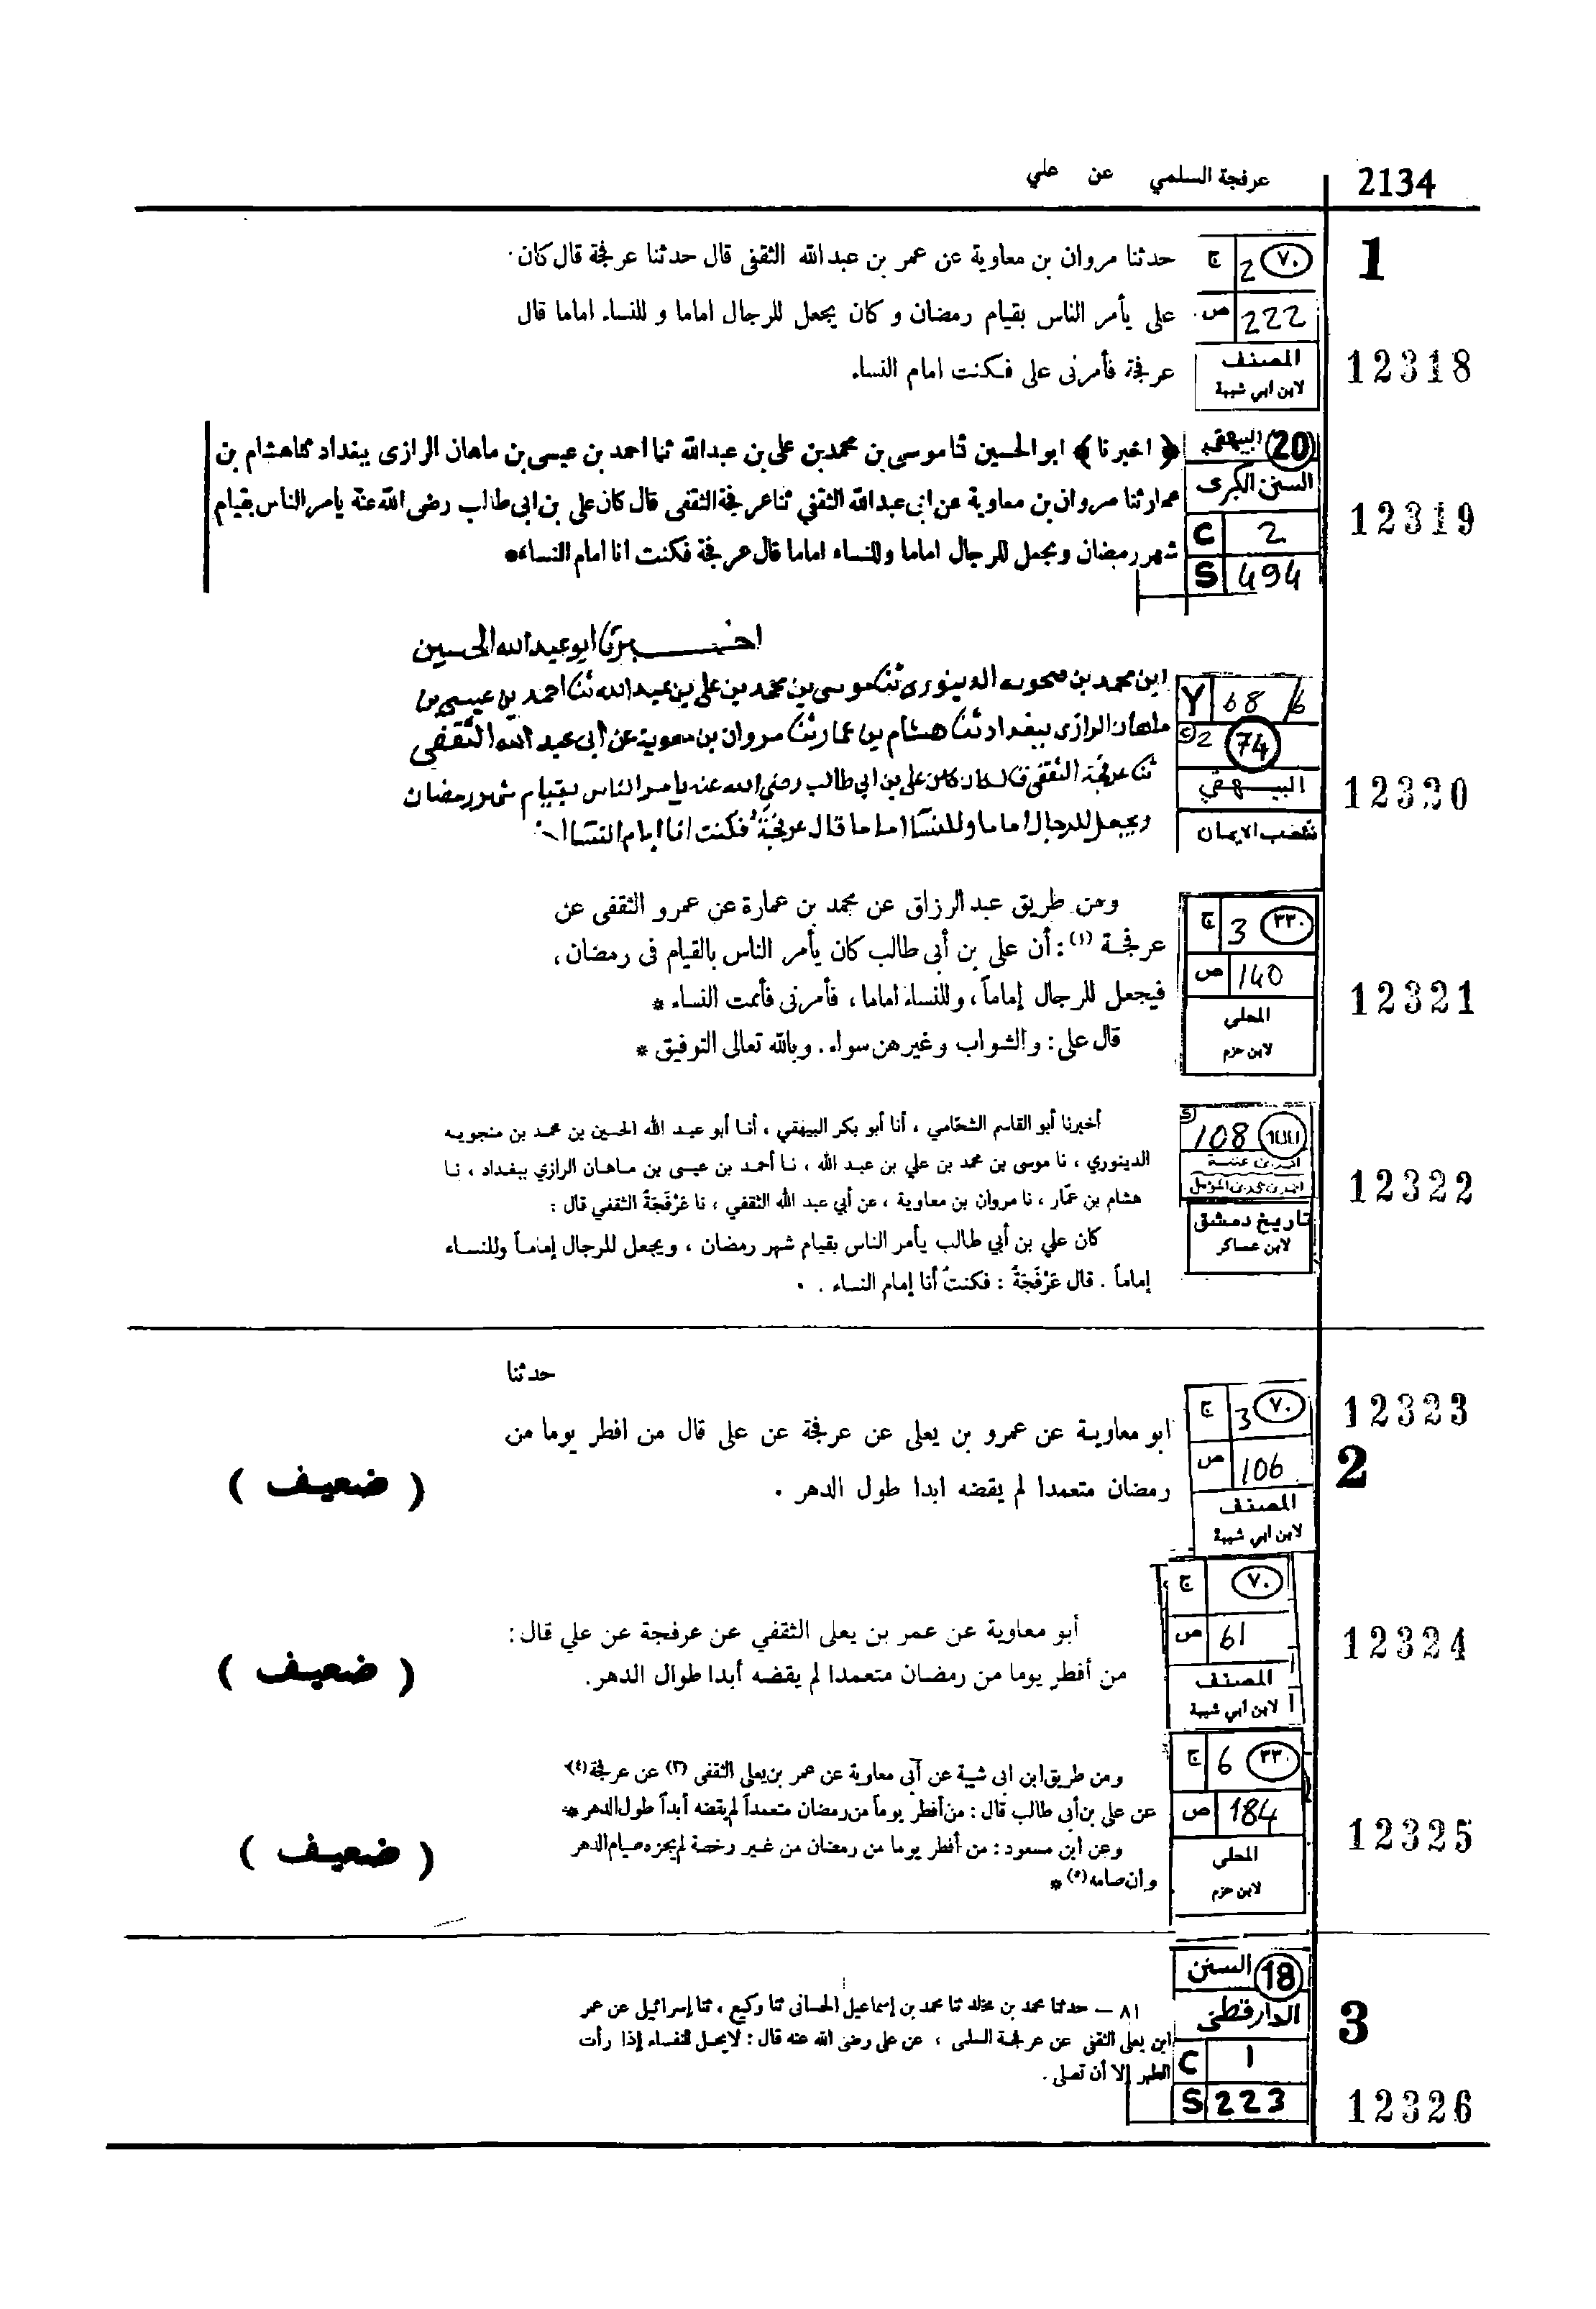 2134
عرفجة السلمي عن علي
1
ج 2 ٧٠
ص 222
المصنف
لابن ابي شيبة
12318
حدثنا مروان بن معاوية عن عمر بن عبد الله الثقفى قال حدثنا عرفجة قال كان
على يأمر الناس بقيام رمضان و كان يجعل للرجال اماما و للنساء اماما قال
عرفجة فأمرنى على فكنت امام النساء
البيهقي 20
السنن الكبرى
C 2
S 494
12319
﴿ اخبرنا ﴾ ابو الحسين ثنا موسى بن محمد بن على بن عبدالله ثنا احمد بن عيسى بن ماهان الرازى ببغداد ثنا هشام بن
عمار ثنا مروان بن معاوية عن ابى عبدالله الثقفي ثنا عرفجة الثقفى قال كان على بن ابى طالب رضى الله عنه يامر الناس بقيام
شهر رمضان ويجعل للرجال اماما وللنساء اماما قال عرفجة فكنت انا امام النساء*
Y 68 /6
2 74
البيهقي
شعب الايمان
12320
اخبرنا ابو عبد الله الحسين
ابن محمد بن الدينورى ثنا موسى بن محمد بن على بن عبد الله ثنا احمد بن عيسى بن
ماهان الرازى ببغداد ثنا هشام بن عمار ثنا مروان بن معوية عن ابى عبد الله الثقفى
ثنا عرفجة الثقفى قال كان على بن ابي طالب رضى الله عنه يامر الناس بقيام شهر رمضان
ويجعل للرجال اماما وللنسآ اماما قال عرفجة فكنت انا امام النسآ
ج 3 ٣٣٠
ص 140
المحلى
لابن حزم
12321
ومن طريق عبد الرزاق عن محمد بن عمارة عن عمرو الثقفى عن
عرفجة (١): أن على بن أبى طالب كان يأمر الناس بالقيام فى رمضان،
فيجعل للرجال إماماً، وللنساء اماما، فأمرنى فأممت النساء *
قال على: والشواب وغيرهن سواء. وبالله تعالى التوفيق *
108
تاريخ دمشق
لابن عساكر
12322
أخبرنا أبو القاسم الشحّامي ، أنا أبو بكر البيهقي ، أنا أبو عبد الله الحسين بن محمد بن منجويه
الدينوري ، نا موسى بن محمد بن علي بن عبد الله ، نا أحمد بن عيسى بن ماهان الرازي ببغداد ، نا
هشام بن عمّار ، نا مروان بن معاوية ، عن أبي عبد الله الثقفي ، نا عَرْفَجَةُ الثقفي قال :
كان علي بن أبي طالب يأمر الناس بقيام شهر رمضان ، ويجعل للرجال إماماً وللنساء
إماماً . قال عَرْفَجَةُ : فكنتُ أنا إمام النساء .
12323
2
ج 3 ٧٠
ص 106
المصنف
لابن ابي شيبة
حدثنا
ابو معاوية عن عمرو بن يعلى عن عرفجة عن على قال من افطر يوما من
رمضان متعمدا لم يقضه ابدا طول الدهر .
( ضعيف )
ج ٧٠
ص 61
المصنف
لابن أبي شيبة
12324
أبو معاوية عن عمر بن يعلى الثقفي عن عرفجة عن علي قال:
من أفطر يوما من رمضان متعمدا لم يقضه أبدا طوال الدهر.
( ضعيف )
ج 6 ٣٣٠
ص 184
المحلى
لابن حزم
12325
ومن طريق ابن ابى شيبة عن أبى معاوية عن عمر بن يعلى الثقفى (٣) عن عرفجة (٤)
عن على بن أبى طالب قال: من أفطر يوماً من رمضان متعمداً لم يقضه أبداً طول الدهر *
وعن ابن مسعود: من أفطر يوما من رمضان من غير رخصة لم يجزه صيام الدهر
وان صامه (٥) *
( ضعيف )
السنن 18
الدارقطنى
C 1
S 223
3
12326
٨١ — حدثنا محمد بن مخلد ثنا محمد بن إسماعيل الحسانى ثنا وكيع ، ثنا إسرائيل عن عمر
ابن يعلى الثقفى عن عرفجة السلمى ، عن على رضى الله عنه قال: لا يحل للنفساء إذا رأت
الطهر إلا أن تصلى .